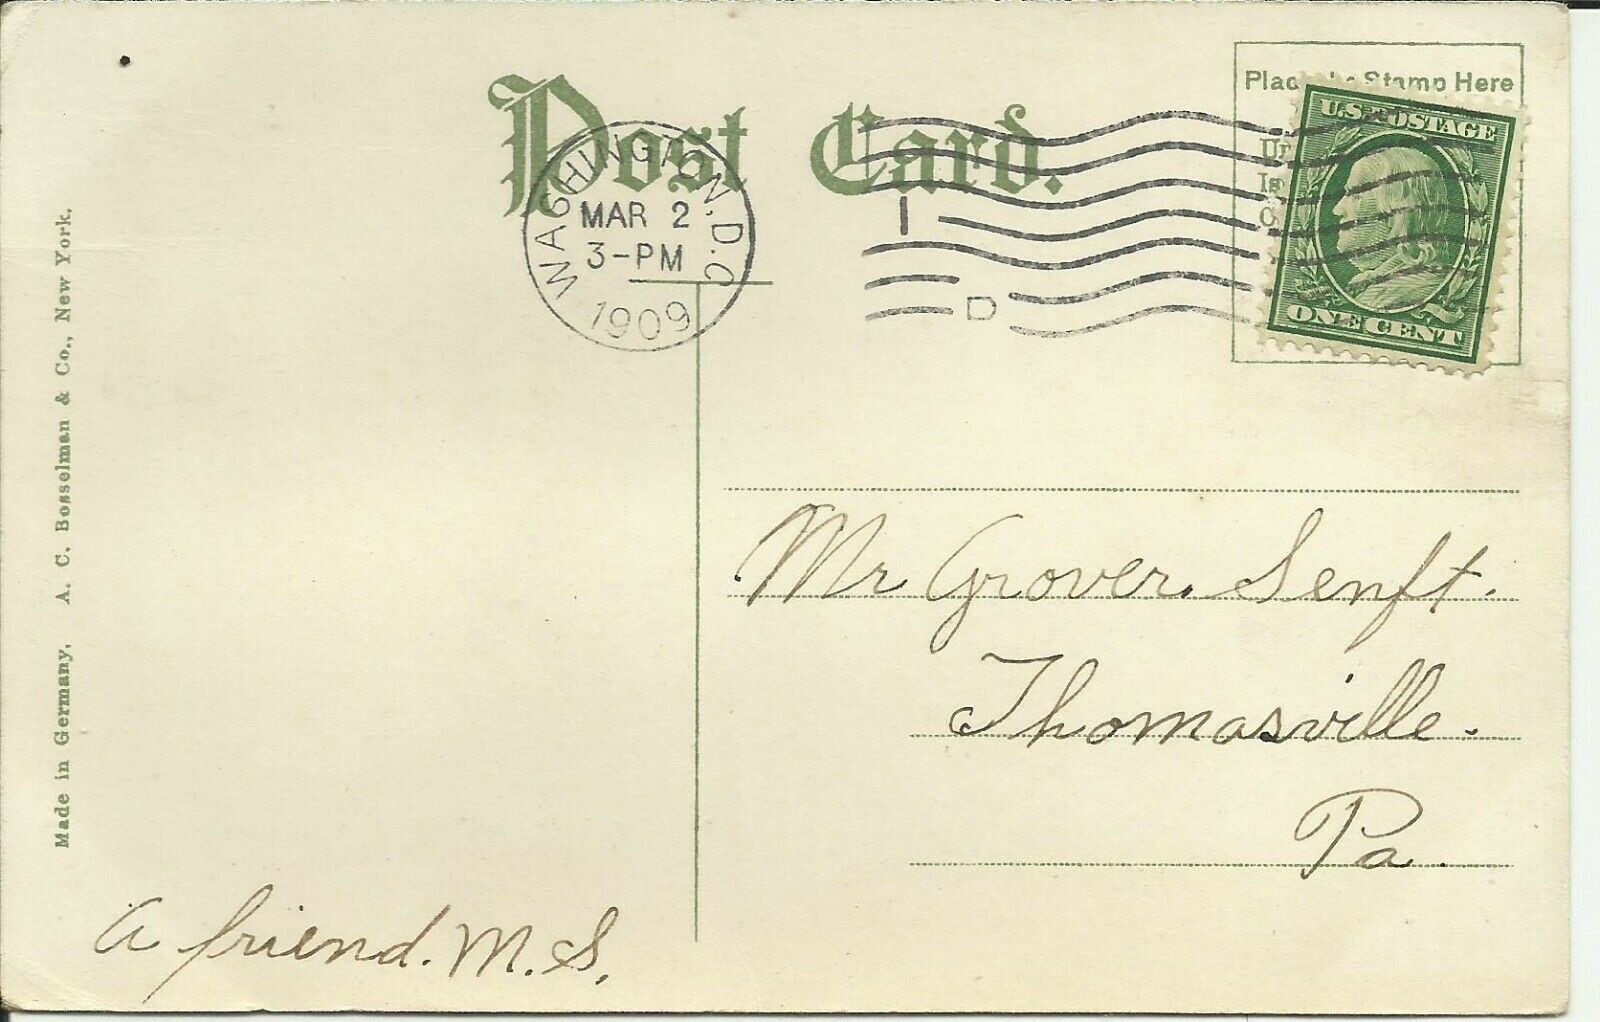 Post Card.
Place Stamp Here
U.S. POSTAGE
ONE CENT
WASHINGTON, D.C.
MAR 2
3-PM
1909
1
D
Mr Grover. Senft.
Thomasville.
Pa.
a friend. M. S.
Made in Germany. A. C. Bosselman & Co., New York.